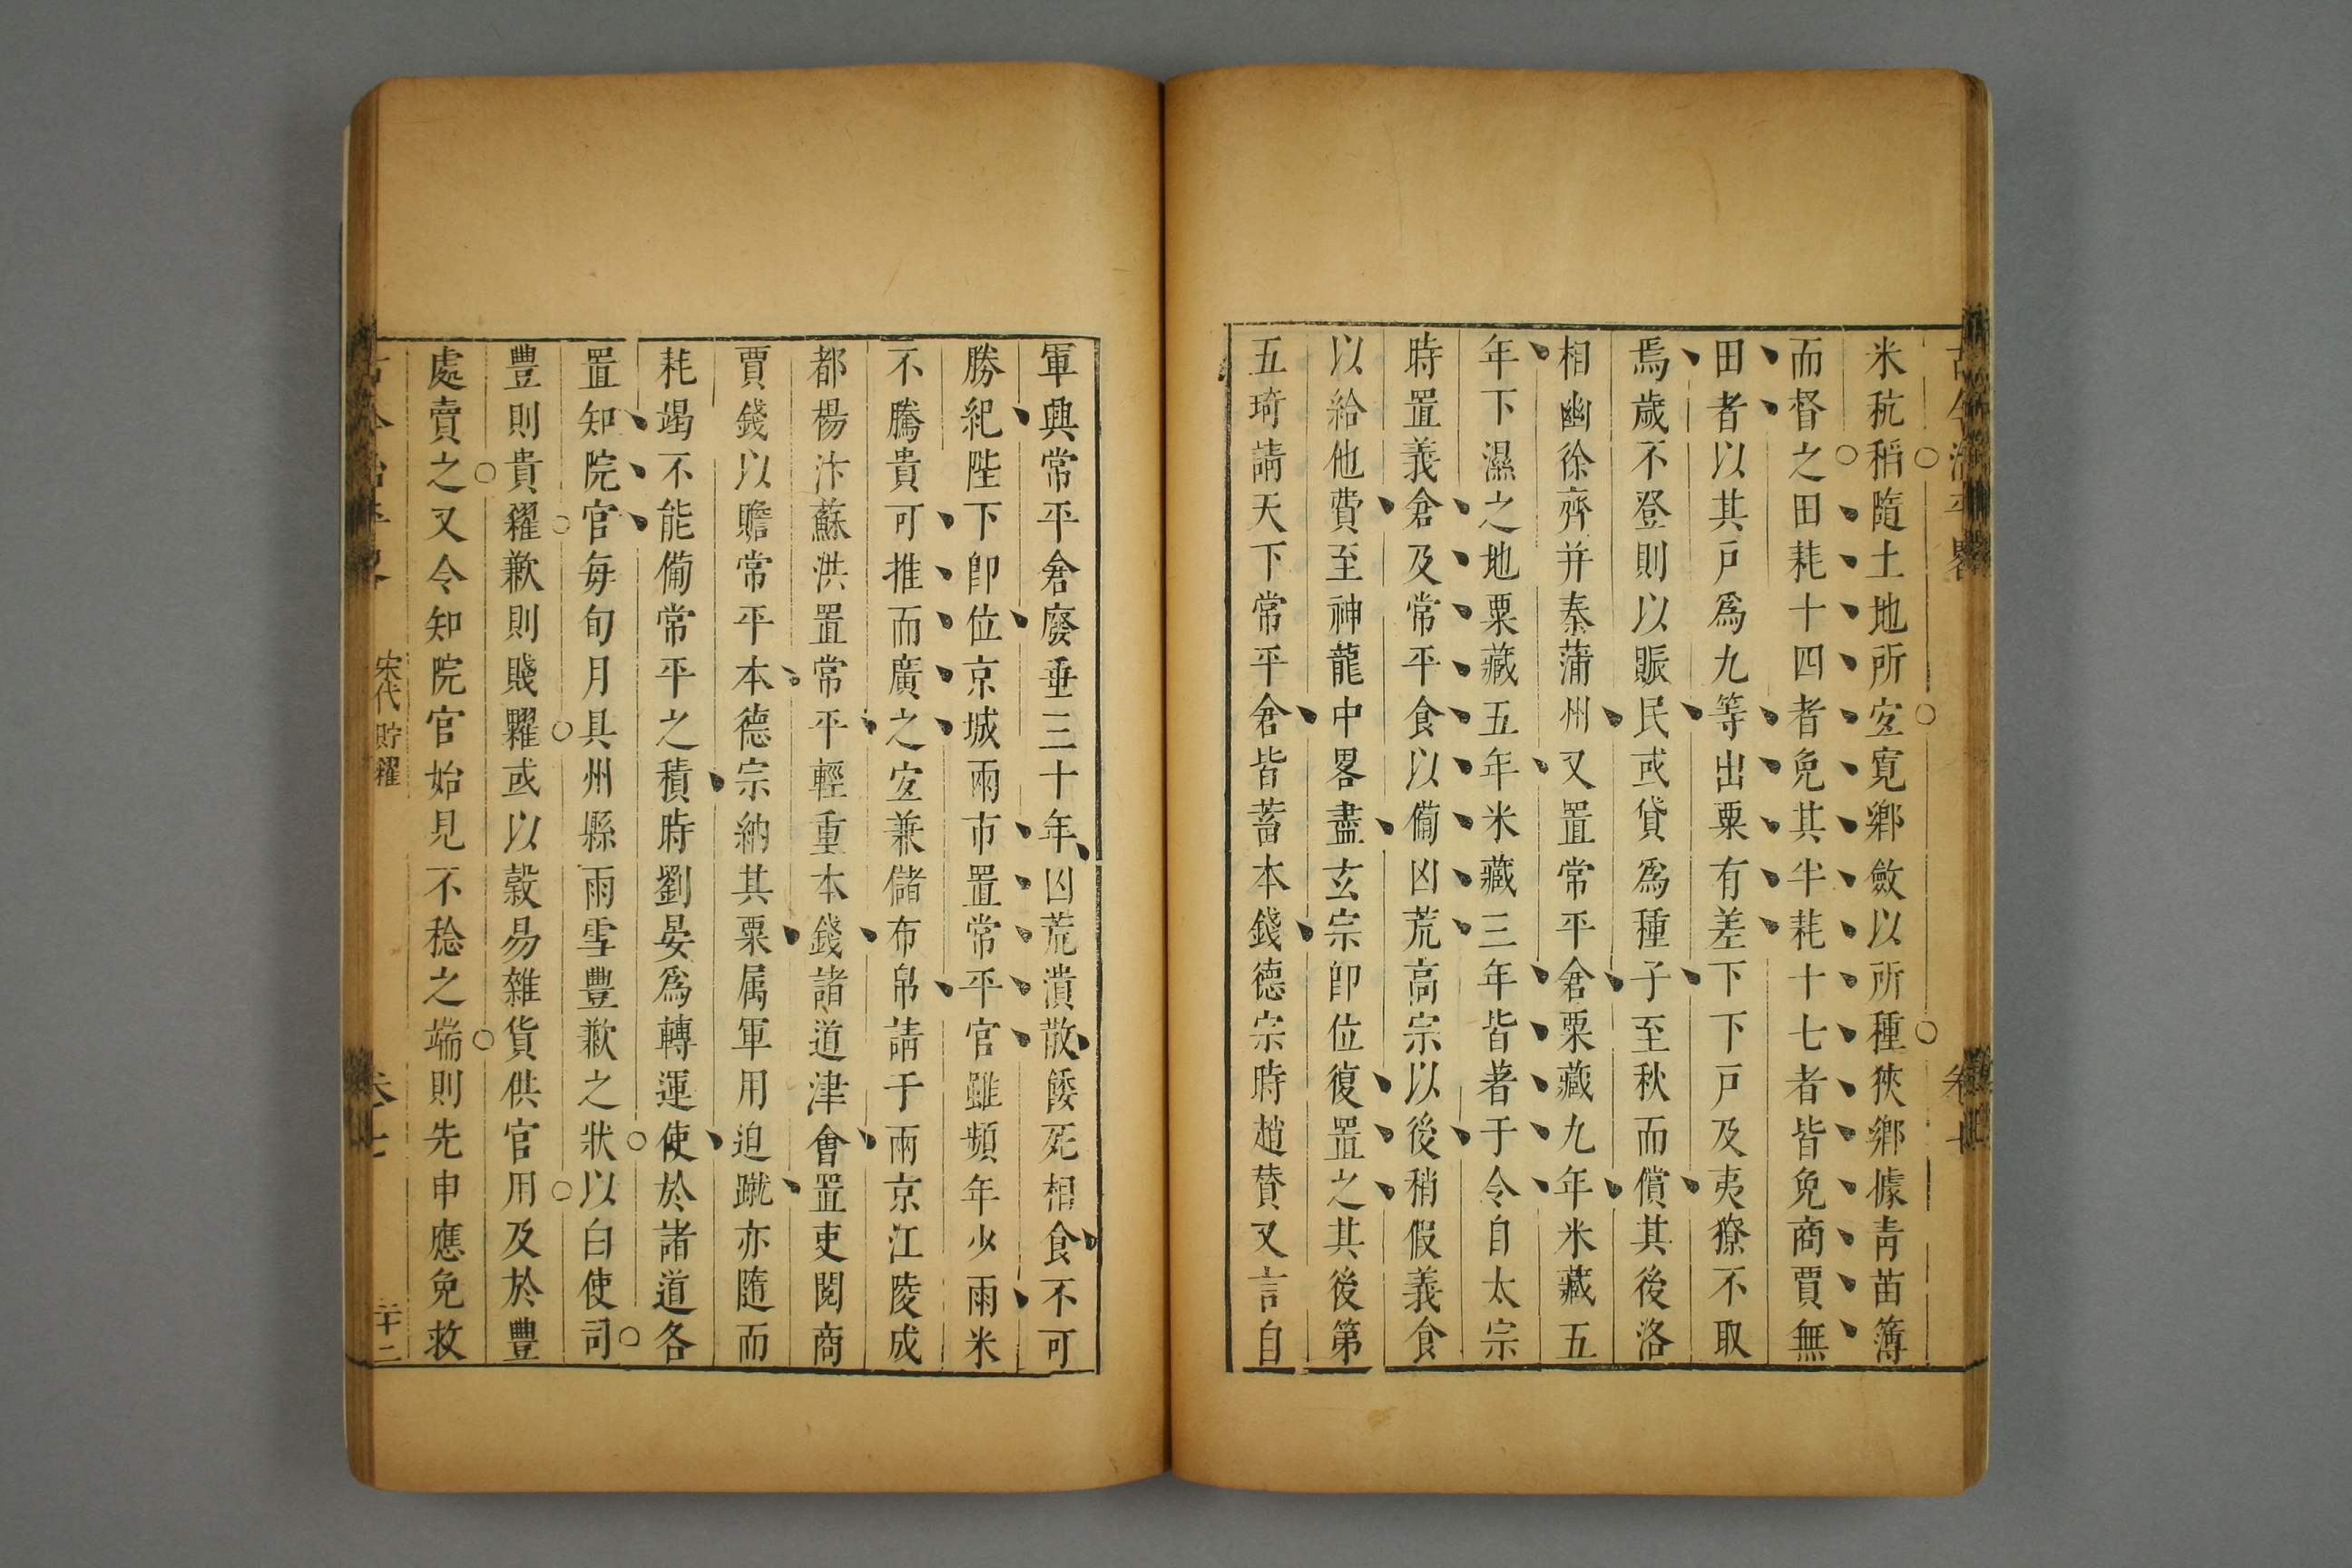 米秔稻隨土地所宜寛鄉斂以所種狹鄉據青苗簿
而督之田耗十四者免其半耗十七者皆免商賈無
田者以其戸爲九等出粟有差下下戸及夷獠不取
焉歲不登則以賑民或貸爲種子至秋而償其後洛
相幽徐齊并秦蒲州又置常平倉粟藏九年米藏五
年下濕之地粟藏五年米藏三年皆著于令自太宗
時置義倉及常平食以備凶荒高宗以後稍假義食
以給他費至神龍中畧盡玄宗卽位復置之其後第
五琦請天下常平倉皆蓄本錢德宗時趙贊又言自
軍興常平倉廢垂三十年凶荒潰散餧死相食不可
勝紀陛下卽位京城兩市置常平官雖頻年少雨米
不騰貴可推而廣之宜兼儲布帛請于兩京江陵成
都楊汴蘇洪置常平輕重本錢諸道津會置吏閱商
賈錢以贍常平本德宗納其粟属軍用迫蹴亦隨而
耗竭不能備常平之積時劉晏爲轉運使於諸道各
置知院官毎旬月具州縣雨雪豐歉之狀以白使司
豐則貴糴歉則賤糶或以榖易雜貨供官用及於豐
處賣之又令知院官始見不稔之端則先申應免救
宋代貯糴
卷七
二十二